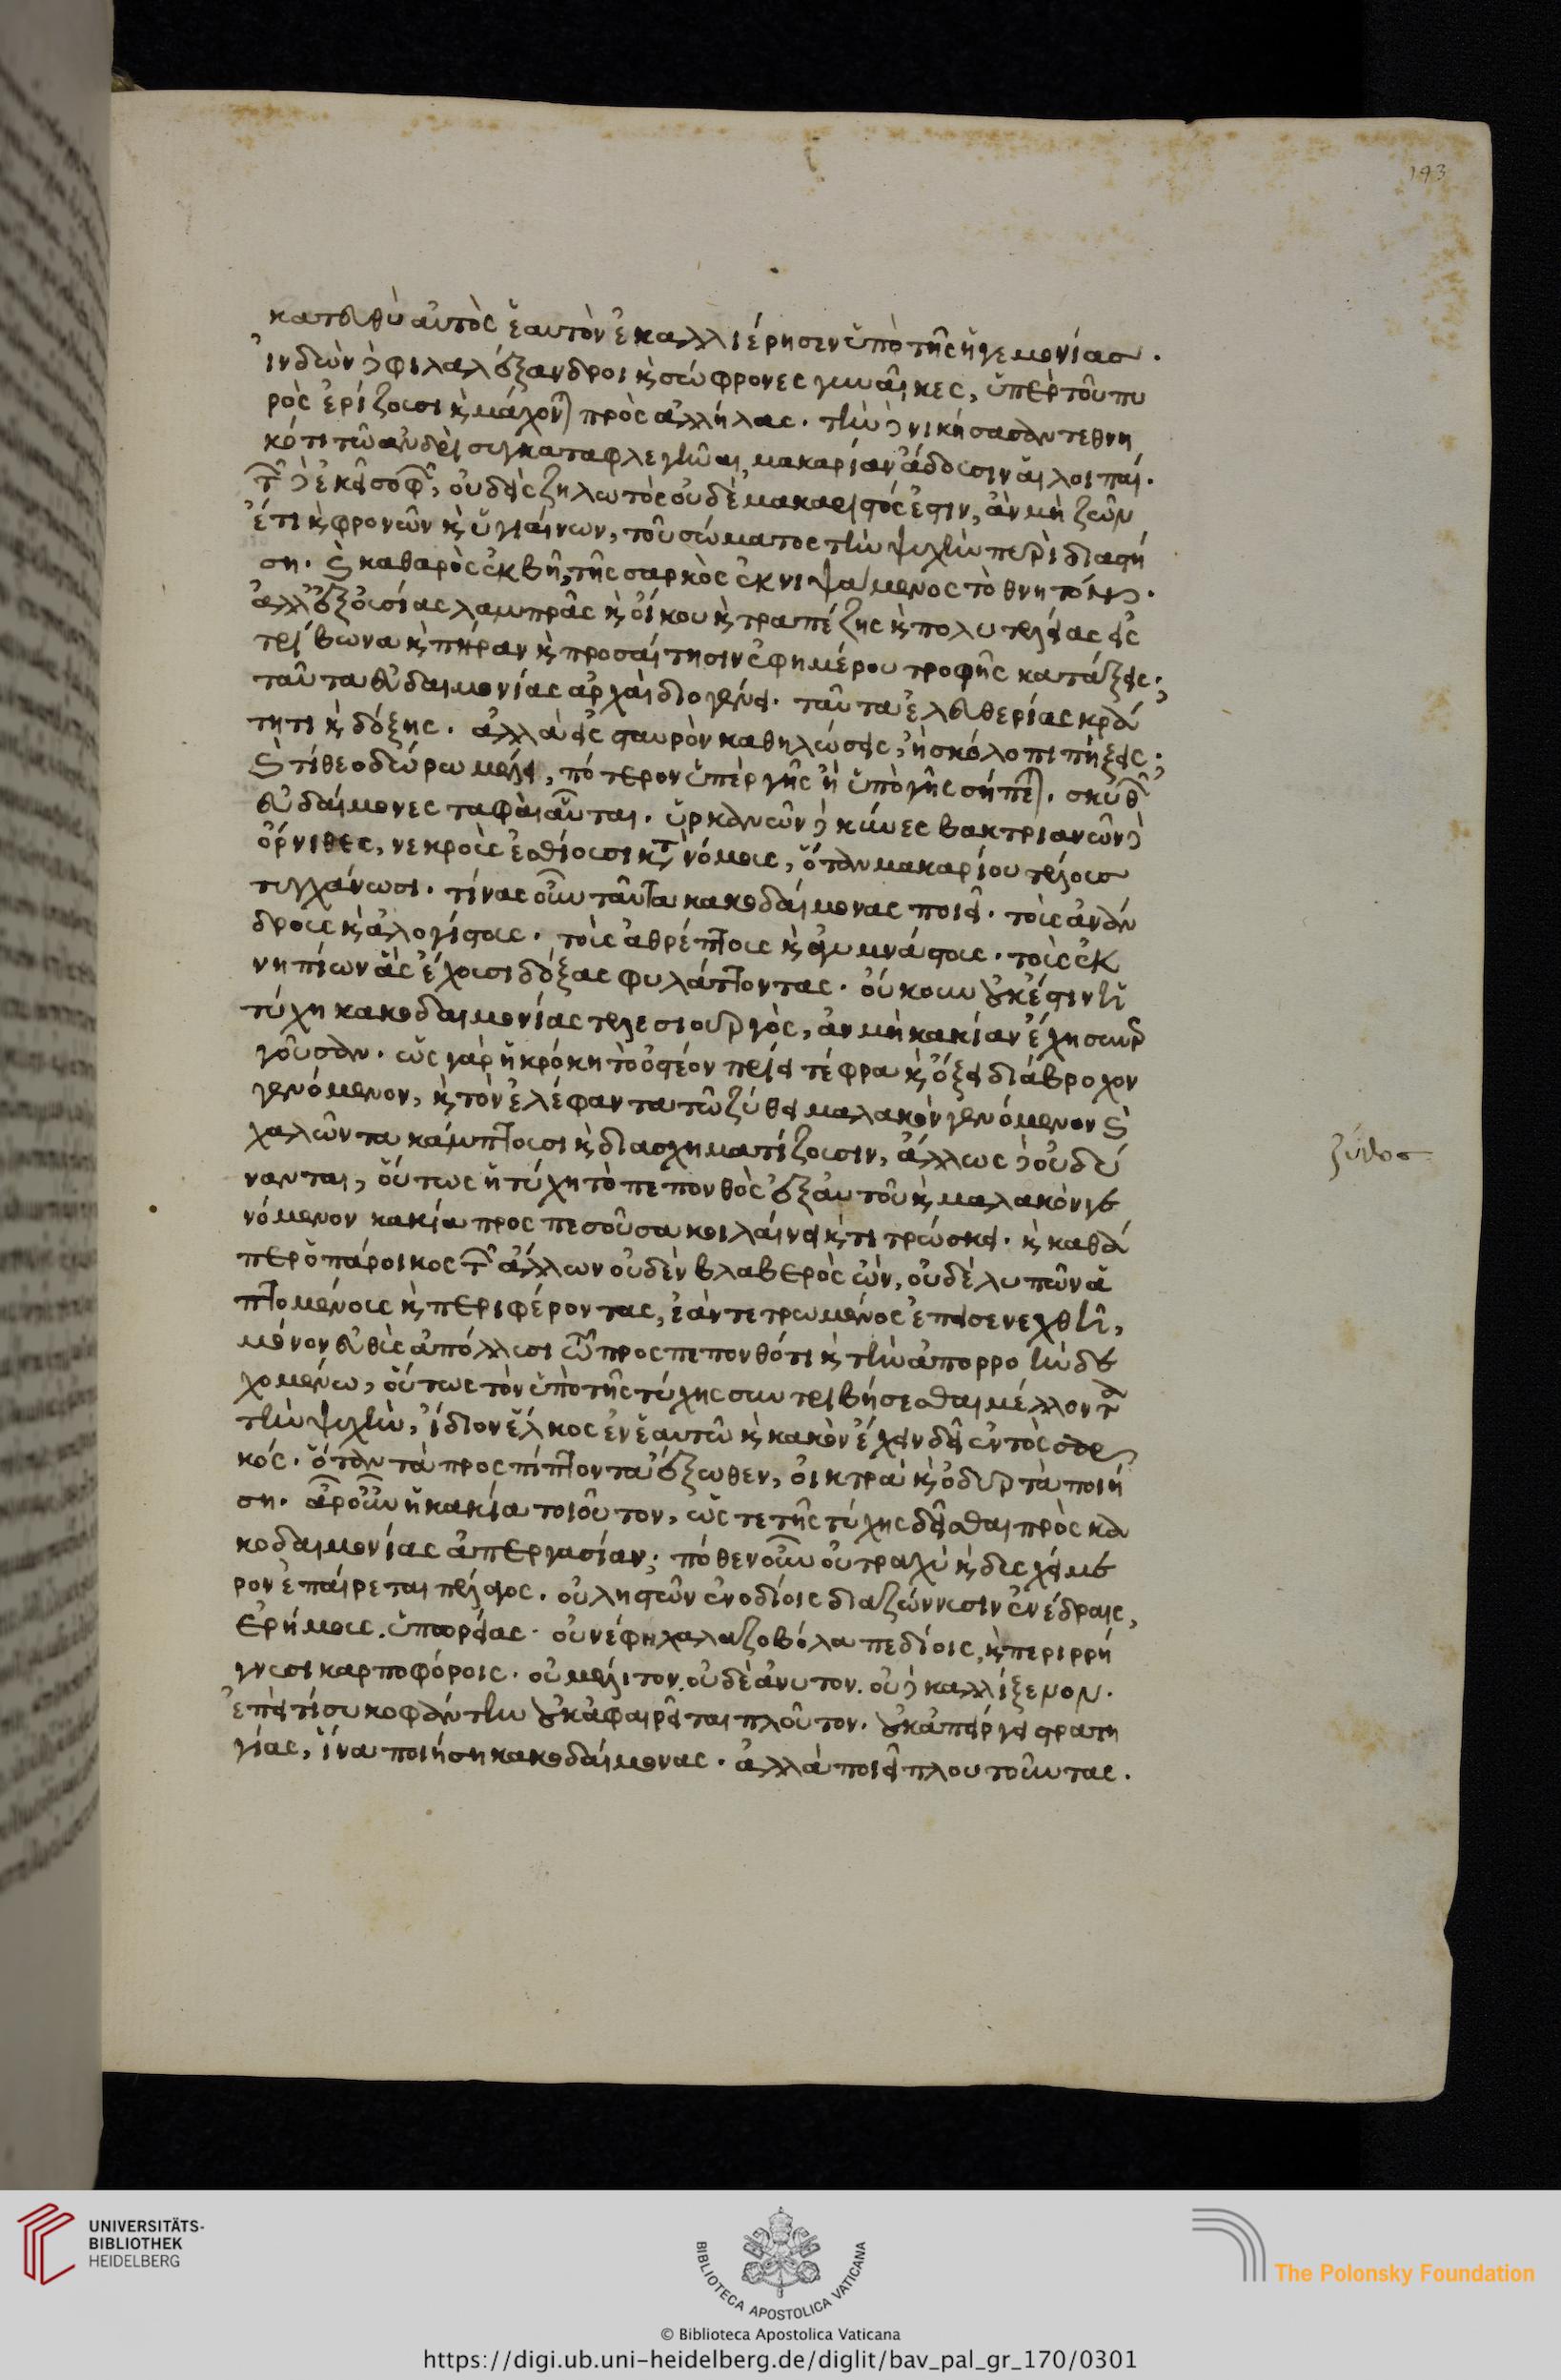 193
κατευθὺ αὐτὸς ἑαυτὸν ἐκαλλιέρησεν ὑπὸ τῆς ἡγεμονίας.
ἰνδῶν δὲ φιλαλέξανδροι κ̀ σώφρονες γυναῖκες, ὑπὲρ τοῦ πυ
ρὸς ἐρίζουσι κ̀ μάχονται πρὸς ἀλλήλας. τὴν δὲ νικήσασαν τεθνη
κότι τῶ ἀνδρὶ συγκαταφλεγῆναι, μακαρίαν ἄδουσιν αἱ λοιπαί.
τῶν δὲ ἐκεῖ σοφῶν, οὐδεὶς ζηλωτὸς οὐδὲ μακαριστός ἐστιν, ἂν μὴ ζῶν
ἔτι κ̀ φρονῶν κ̀ ὑγιαίνων, τοῦ σώματος τὴν ψυχὴν πυρὶ διαστή
ση. κ̀ καθαρὸς ἐκβῆ, τῆς σαρκὸς ἐκνιψάμενος τὸ θνητόν.
ἀλλ' ἐξ οὐσίας λαμπρᾶς κ̀ οἴκου κ̀ τραπέζης κ̀ πολυτελείας εἰς
τρίβωνα κ̀ πήραν κ̀ προσαίτησιν ἐφημέρου τροφῆς κατάξεις;
ταῦτα εὐδαιμονίας ἀρχαὶ διογένει. ταῦτα ἐλευθερίας κρά
τητι κ̀ δόξης. ἀλλὰ εἰς σταυρὸν καθηλώσεις, ἢ σκόλοπι πήξεις;
κ̀ τί θεοδώρω μέλει, πότερον ὑπὲρ γῆς ἢ ὑπὸ γῆς σήπεται. σκυθῶν
εὐδαίμονες ταφαὶ αὗται. ὑρκανῶν δὲ κύνες βακτριανῶν δὲ
ὄρνιθες, νεκροὺς ἐσθίουσι κατὰ νόμους, ὅταν μακαρίου τέλους
τυγχάνωσι. τίνας οὖν ταῦτα κακοδαίμονας ποιεῖ. τοὺς ἀνάν
δρους κ̀ ἀλογίστους. τοὺς ἀθρέπτους κ̀ ἀγυμνάστους. τοὺς ἐκ
νηπίων ἃς ἔχουσι δόξας φυλάττοντας. οὔκουν οὐκ ἔστιν ἡ
τύχη κακοδαιμονίας τελεσιουργὸς, ἂν μὴ κακίαν ἔχη συνερ
γοῦσαν. ὡς γὰρ ἡ κρόκη τὸ ὀστέον πρίει τέφρα κ̀ ὄξει διάβροχον
γενόμενον, κ̀ τὸν ἐλέφαντα τῶ ζύθει μαλακὸν γενόμενον κ̀
χαλῶντα κάμπτουσι κ̀ διασχηματίζουσιν, ἄλλως δὲ οὐ δύ
ζύθος
νανται, οὕτως ἡ τύχη τὸ πεπονθὸς ἐξ αὑτοῦ κ̀ μαλακὸν γε
νόμενον κακία προσπεσοῦσα κοιλαίνει κ̀ τιτρώσκει. κ̀ καθά
περ ὁ πάροικος τῶν ἄλλων οὐδὲν βλαβερὸς ὢν, οὐδὲ λυπῶν ἁ
πτομένους κ̀ περιφέροντας, ἐὰν τετρωμένος ἐπεισενεχθῆ,
μόνον εὐθὺς ἀπόλλυσι τῶ προσπεπονθότι κ̀ τὴν ἀπορροὴν δε
χομένω, οὕτως τὸν ὑπὸ τῆς τύχης συντριβήσεσθαι μέλλοντα
τὴν ψυχὴν, ἴδιον ἕλκος ἐν ἑαυτῶ κ̀ κακὸν ἔχειν δεῖ ἐντὸς σαρ
κός. ὅταν τὰ προσπίπτοντα ἔξωθεν, οἰκτρὰ κ̀ ὀδυρτὰ ποιή
ση. ἆρ' οὖν ἡ κακία τοιοῦτον, ὥστε τῆς τύχης δεῖσθαι πρὸς κα
κοδαιμονίας ἀπεργασίαν; πόθεν οὖν οὐ τραχὺ κ̀ δυσχείμε
ρον ἐπαίρεται πέλαγος. οὐ ληστῶν ἐνοδίοις διαζώννυσιν ἐνέδραις,
ἐρήμους ὑπωρείας. οὐ νέφη χαλαζοβόλα πεδίοις, κ̀ περιρρή
γνυσι καρποφόροις. οὐ μέλιτον. οὐδὲ ἄνυτον. οὐδὲ καλλίξενον.
ἐπάγει συκοφάντην οὐκ ἀφαιρεῖται πλοῦτον. οὐκ ἀπείργει στρατη
γίας, ἵνα ποιήση κακοδαίμονας. ἀλλὰ ποιεῖ πλουτοῦντας.
UNIVERSITÄTS-
BIBLIOTHEK
HEIDELBERG
BIBLIOTECA APOSTOLICA VATICANA
The Polonsky Foundation
© Biblioteca Apostolica Vaticana
https://digi.ub.uni-heidelberg.de/diglit/bav_pal_gr_170/0301